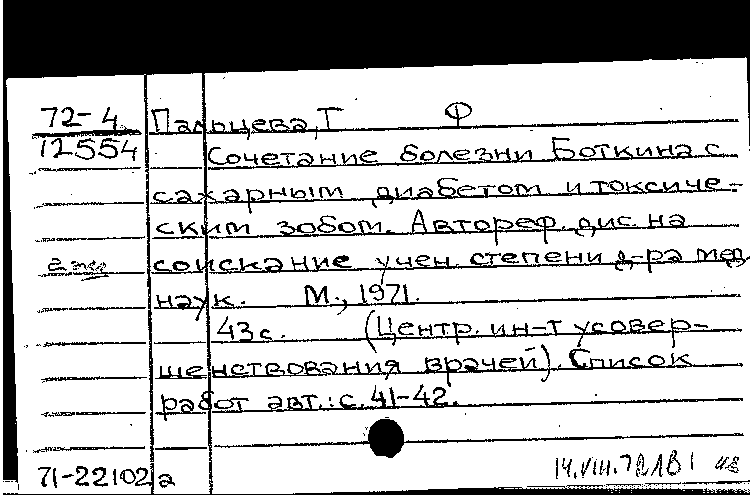 72-4
12554
Пальцева, Т Ф
Сочетание болезни Боткина с
сахарным диабетом и токсиче-
ским зобом. Автореф. дис. на
соискание учен. степени д-ра мед
наук. М., 1971.
43 с. (Центр. ин-т усовер-
шенствования врачей). Список
работ авт.: с. 41-42.
71-22102а
14.VIII.72